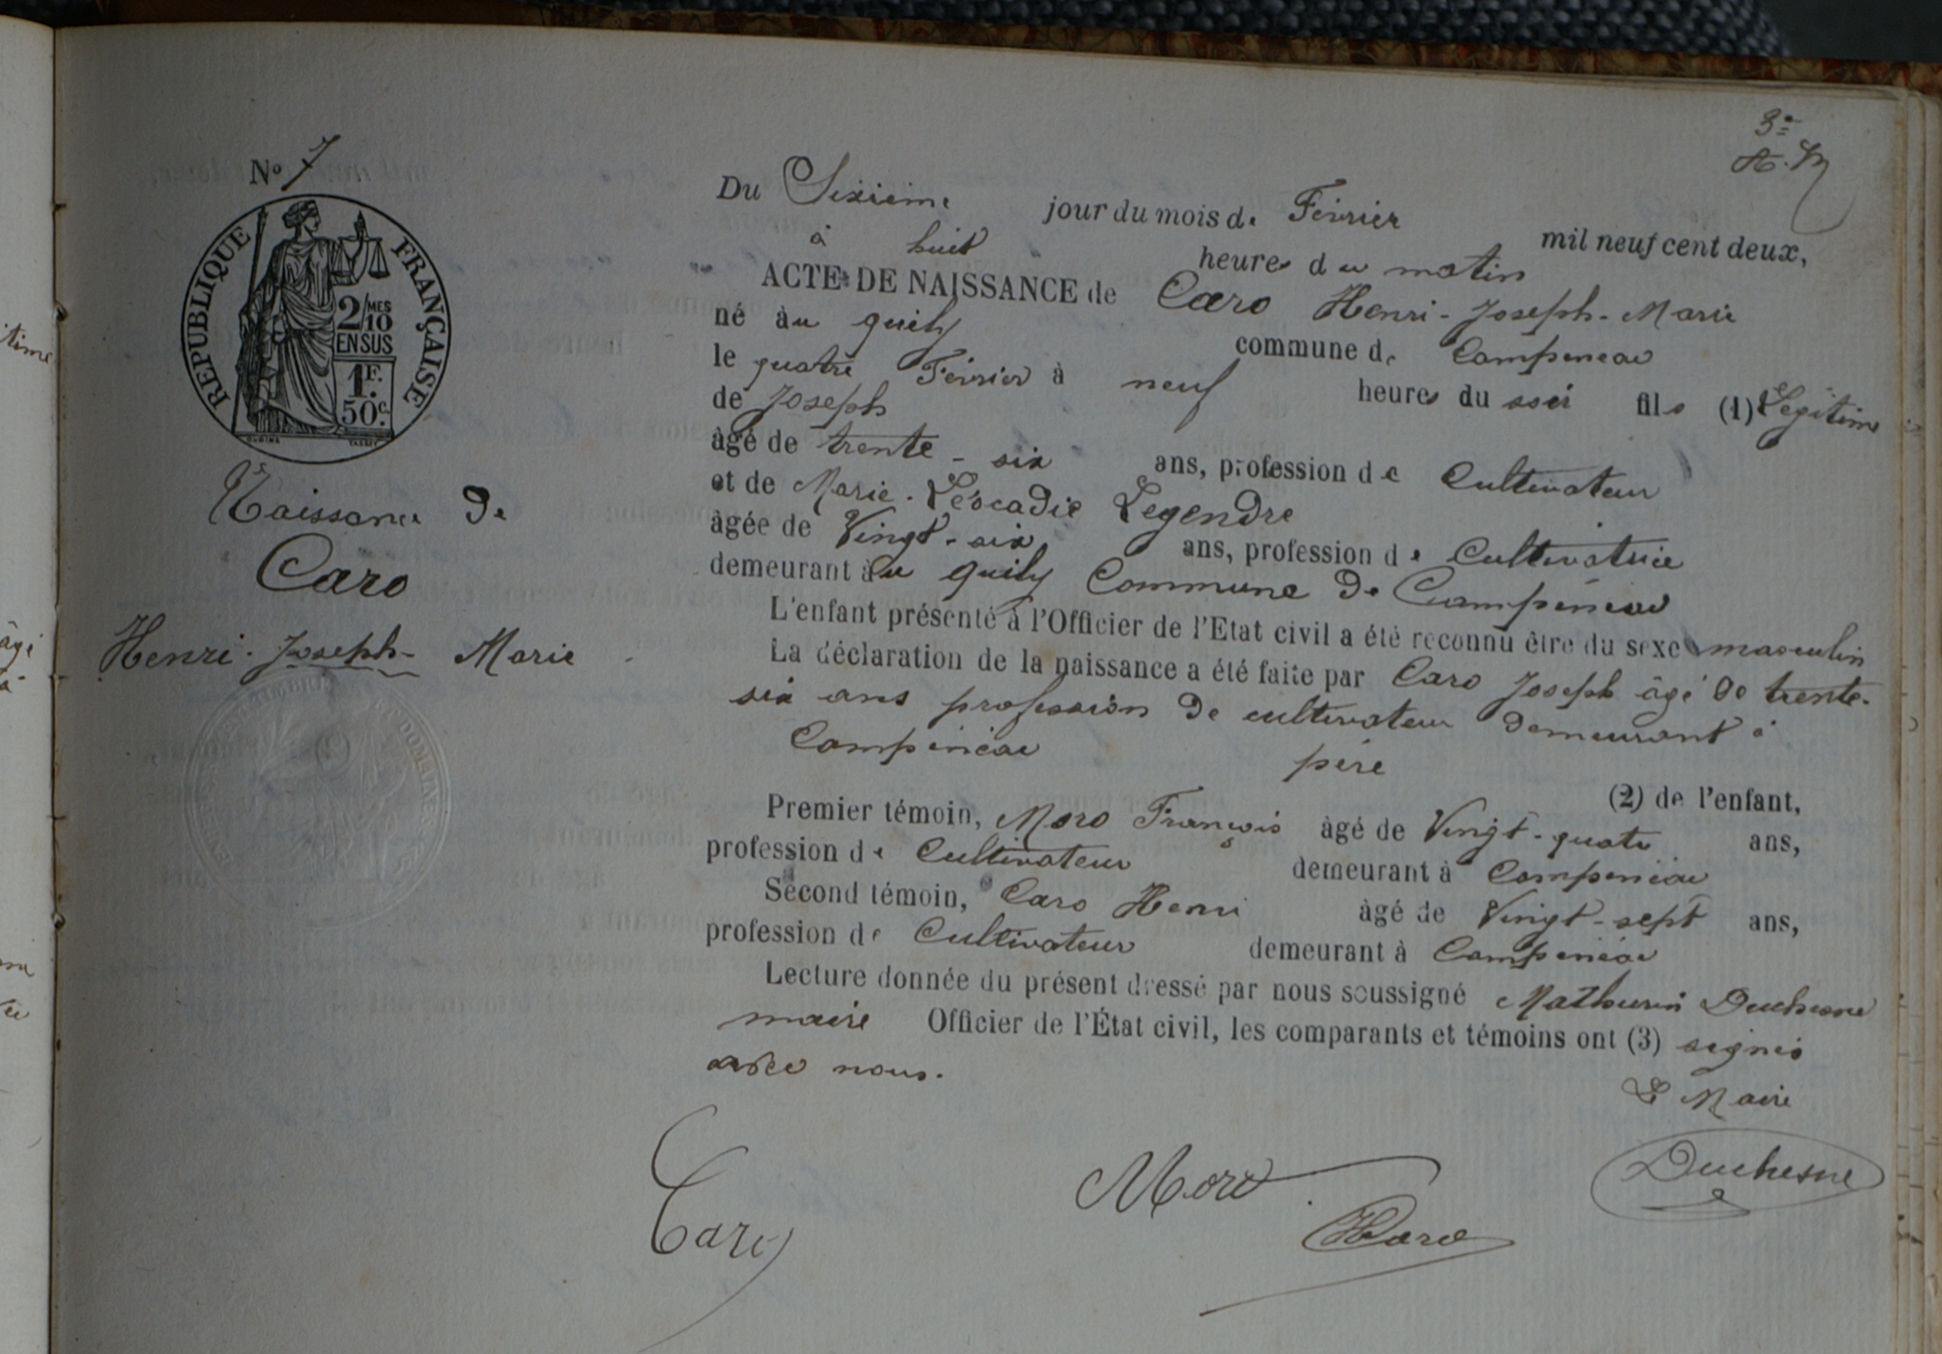 3e
N° 7
REPUBLIQUE FRANÇAISE
2/MES
10
EN SUS
1F.
50c.
Naissance de
Caro
Henri-Joseph-Marie
Du Sixième jour du mois de Février mil neuf cent deux,
à huit heures du matin
ACTE DE NAISSANCE de Caro Henri-Joseph-Marie
né au quily commune de Campénéac
le quatre Février à neuf heures du soir fils (1) Légitime
de Joseph
âgé de trente-six ans, profession de Cultivateur
et de Marie-Léocadie Legendre
âgée de Vingt-six ans, profession de Cultivatrice
demeurant au quily Commune de Campénéac
L'enfant présenté à l'Officier de l'Etat civil a été reconnu être du sexe masculin
La déclaration de la naissance a été faite par Caro Joseph âgé de trente-
six ans profession de cultivateur demeurant à
Campénéac père (2) de l'enfant,
Premier témoin, Moro François âgé de Vingt-quatre ans,
profession de Cultivateur demeurant à Campénéac
Second témoin, Caro Henri âgé de Vingt-sept ans,
profession de Cultivateur demeurant à Campénéac
Lecture donnée du présent dressé par nous soussigné Mathurin Duchesne
maire Officier de l'État civil, les comparants et témoins ont (3) signés
avec nous.
Le Maire
Duchesne
Moro
Caro
HCaro
time
âgé
à